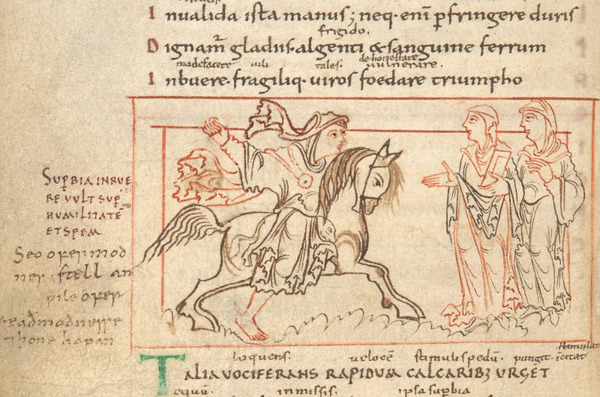 Inualida ista manus; neq· eni pfringere duris
frigido.
Dignam gladiis· algenti & sanguine ferrum
madefacere uili tales. dehonestare uulnerare.
Inbuere· fragiliq· uiros foedare triumpho
SUPBIA INRUE
RE UULT SUP
HUMILITATĒ
ET SPEM
Seo ofermod
an
ofer
humilitat
loquens. uelocē stimulis pedū. pungit· icitat
TALIA UOCIFERANS RAPIDUM CALCARIBꝫ URGET
equū. inmissis. ipsa supbia